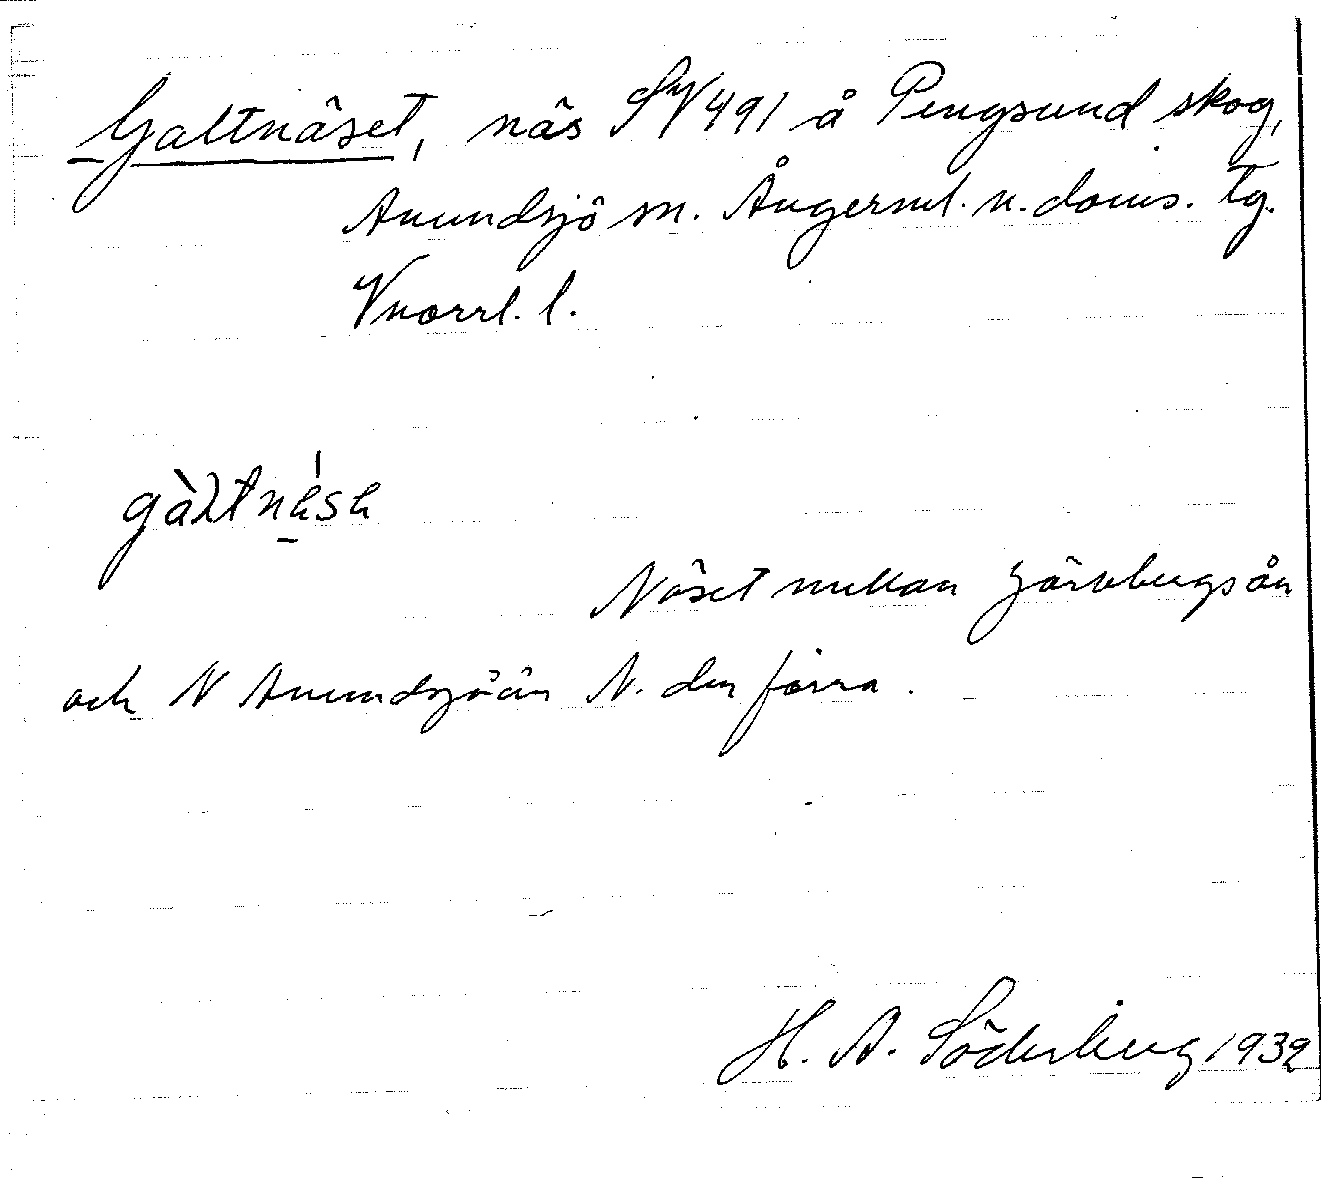 Galtnäset, näs SV 491 å Pengsund skog,
Anundsjö sn. Ångerml. n. doms. tg.
Vnorrl. l.
gàltnása
Näset mellan Järvbergsån
och N Anundsjöån N. den förra.
H. A. Söderberg 1932